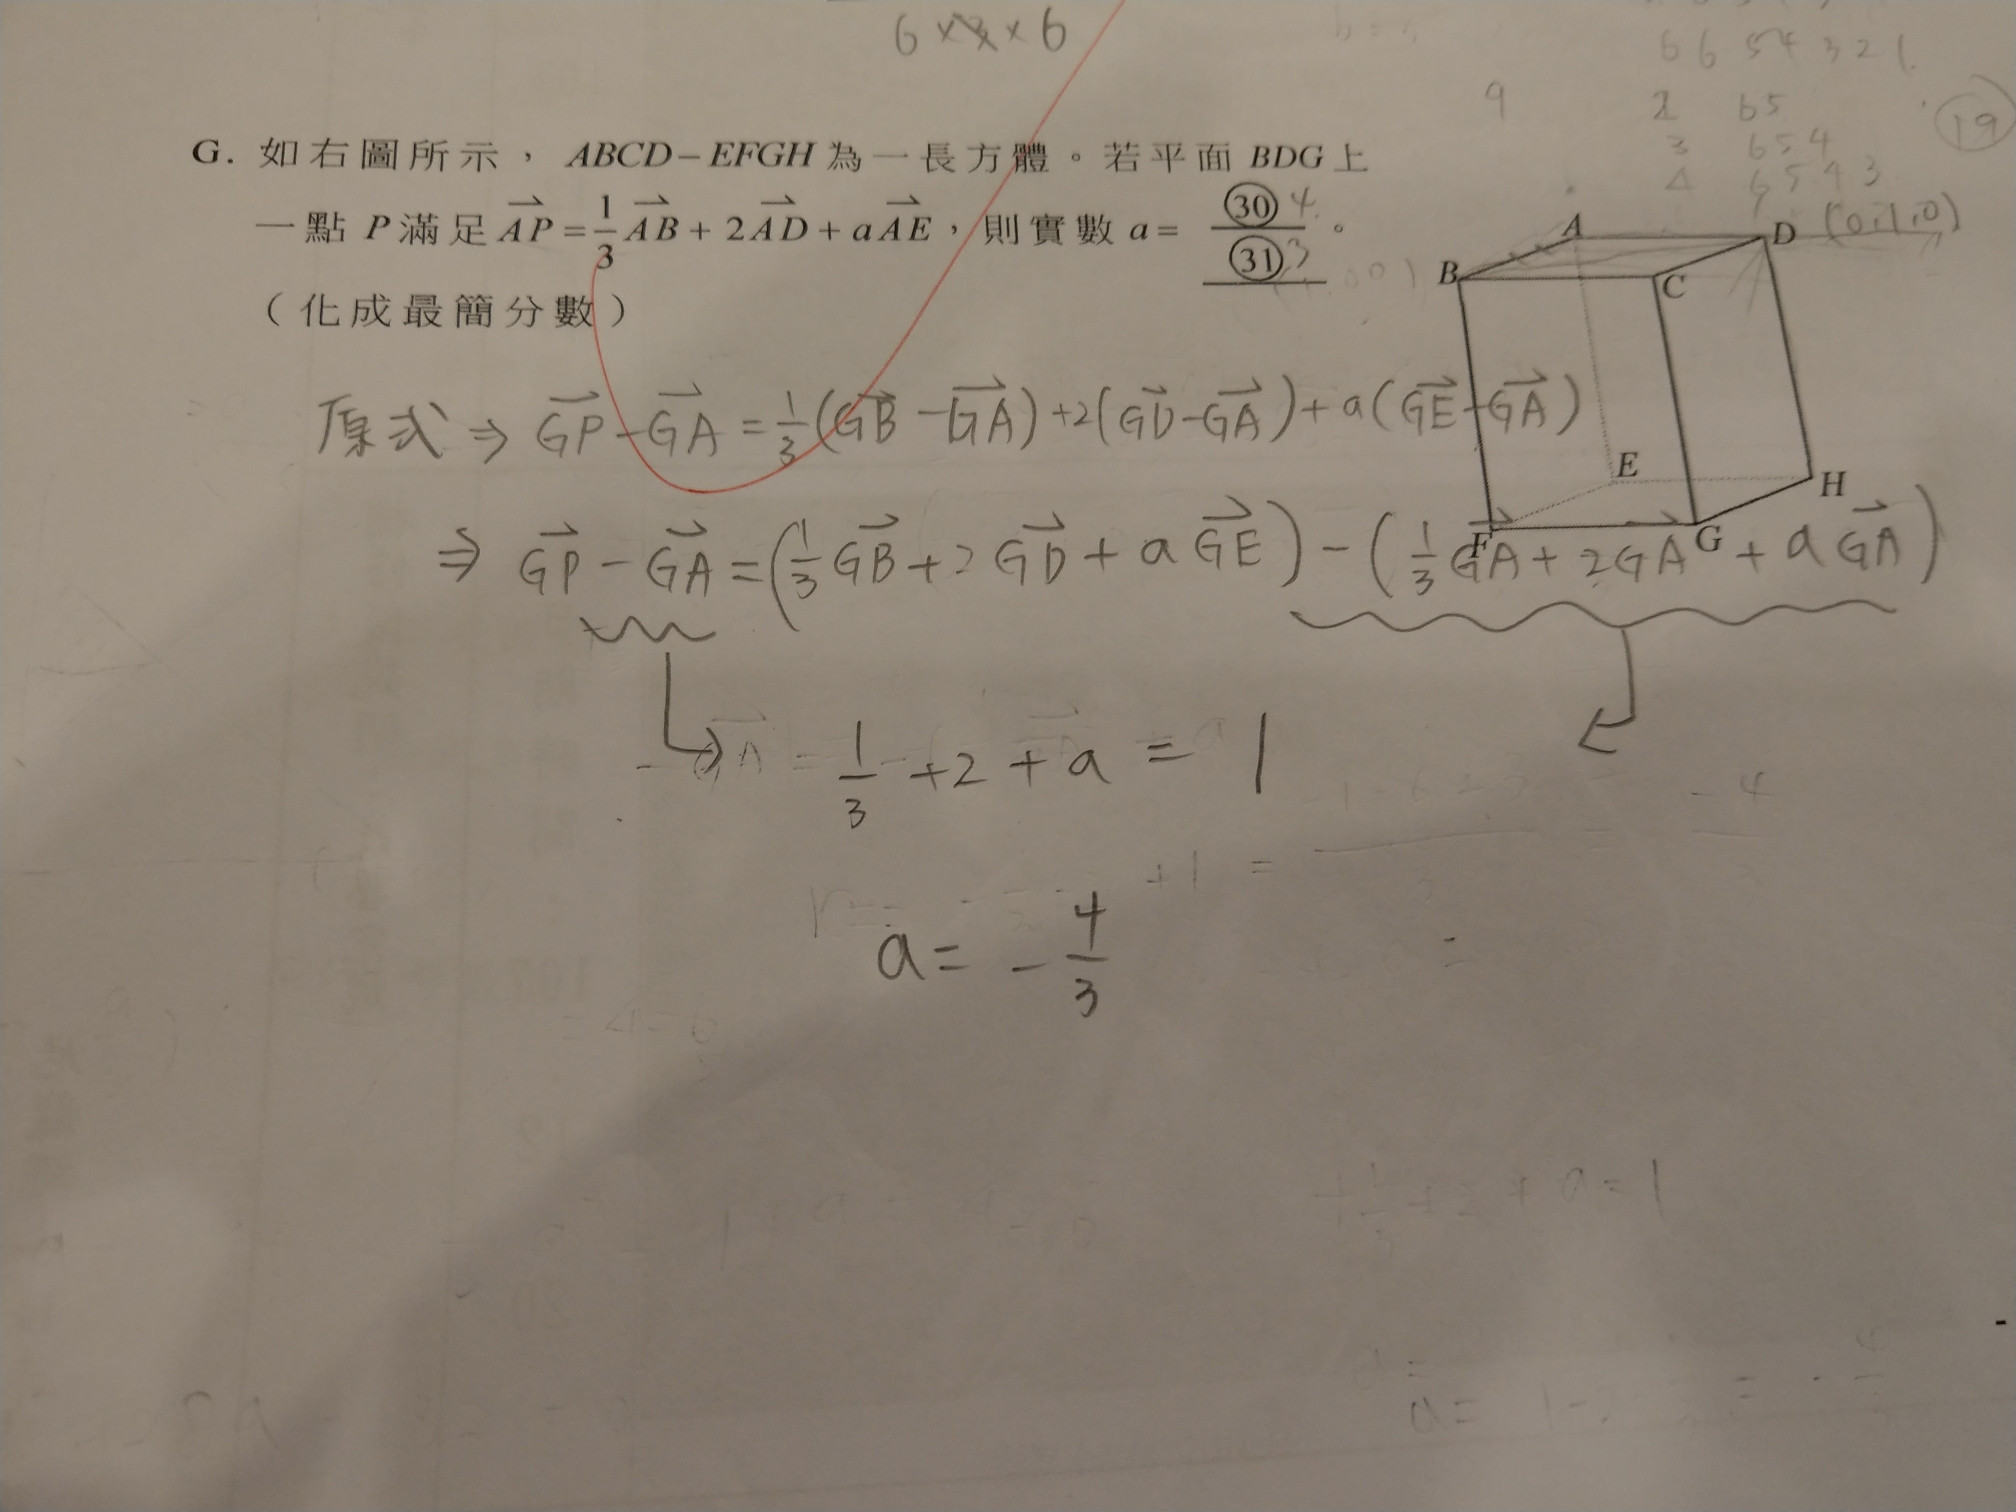 6 × 3 × 6
6 6 5 4 3 2 1
9
2 6 5
3 6 5 4
4 6 5 4 3
19
G. 如右圖所示，ABCD－EFGH為一長方體。若平面 BDG上
一點 P滿足 AP = 1/3 AB + 2AD + aAE，則實數 a = ㉚ 4 / ㉛ 3 。
（化成最簡分數）
A
D (0,1,0)
B
C
E
H
F
G
原式 ⇒ GP - GA = 1/3 (GB - GA) + 2(GD - GA) + a(GE - GA)
⇒ GP - GA = (1/3 GB + 2GD + aGE) - (1/3 GA + 2GA + aGA)
1/3 + 2 + a = 1
a = - 4/3
1/3 + 2 + a = 1